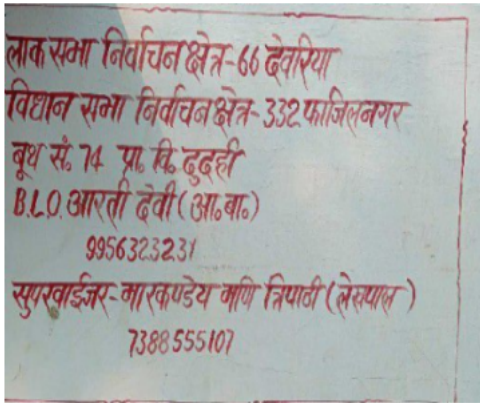 लाक सभा निर्वाचन क्षेत्र-66 देवरिया
विधान सभा निर्वाचन क्षेत्र-332 फाजिलनगर
बूथ सं. 74 प्रा. वि. दुदही
B.L.O. आरती देवी (आ.बा.)
9956323231
सुपरवाईजर-मारकण्डेय मणि त्रिपाठी (लेखपाल)
7388555107